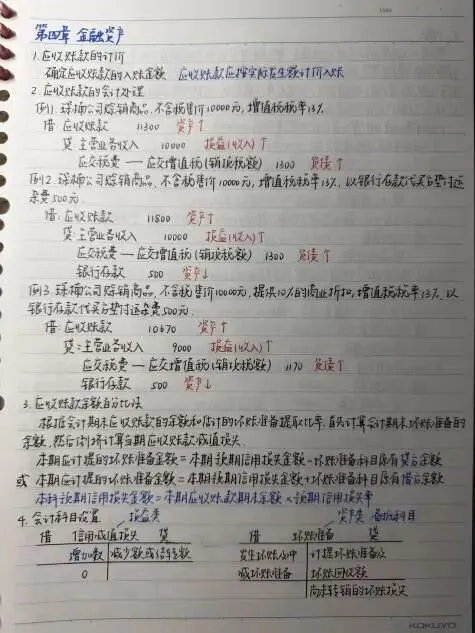 第四章 金融资产
1.应收账款的计价
确定应收账款的入账金额 应收账款应按实际发生额计价入账
2.应收账款的会计处理
例1.球桶公司赊销商品,不含税售价10000元,增值税税率13%
借:应收账款 11300 资产↑
贷:主营业务收入 10000 损益(收入)↑
应交税费—应交增值税(销项税额) 1300 负债↑
例2.球桶公司赊销商品,不含税售价10000元,增值税税率13%,以银行存款代买方垫付运
杂费500元.
借:应收账款 11800 资产↑
贷:主营业务收入 10000 损益(收入)↑
应交税费—应交增值税(销项税额) 1300 负债↑
银行存款 500 资产↓
例3.球桶公司赊销商品,不含税售价10000元,提供10%的商业折扣,增值税税率13%.以
银行存款代买方垫付运杂费500元.
借:应收账款 10670 资产↑
贷:主营业务收入 9000 损益(收入)↑
应交税费—应交增值税(销项税额) 1170 负债↑
银行存款 500 资产↓
3.应收账款余额百分比法
根据会计期末应收账款的余额和估计的坏账准备提取比率,首先计算会计期末坏账准备的
余额,然后倒挤计算当期应收账款减值损失.
本期应计提的坏账准备金额=本期预期信用损失金额-坏账准备科目原有贷方余额
或 本期应计提的坏账准备金额=本期预期信用损失金额+坏账准备科目原有借方余额
本科预期信用损失金额=本期应收账款期末余额×预期信用损失率
4.会计科目设置 损益类 资产类 备抵科目
借 信用减值损失 贷 借 坏账准备 贷
增加数 减少额或结转额 发生坏账时冲 计提坏账准备及
0 减坏账准备 坏账回收额
尚未转销的坏账损失
KOKUYO